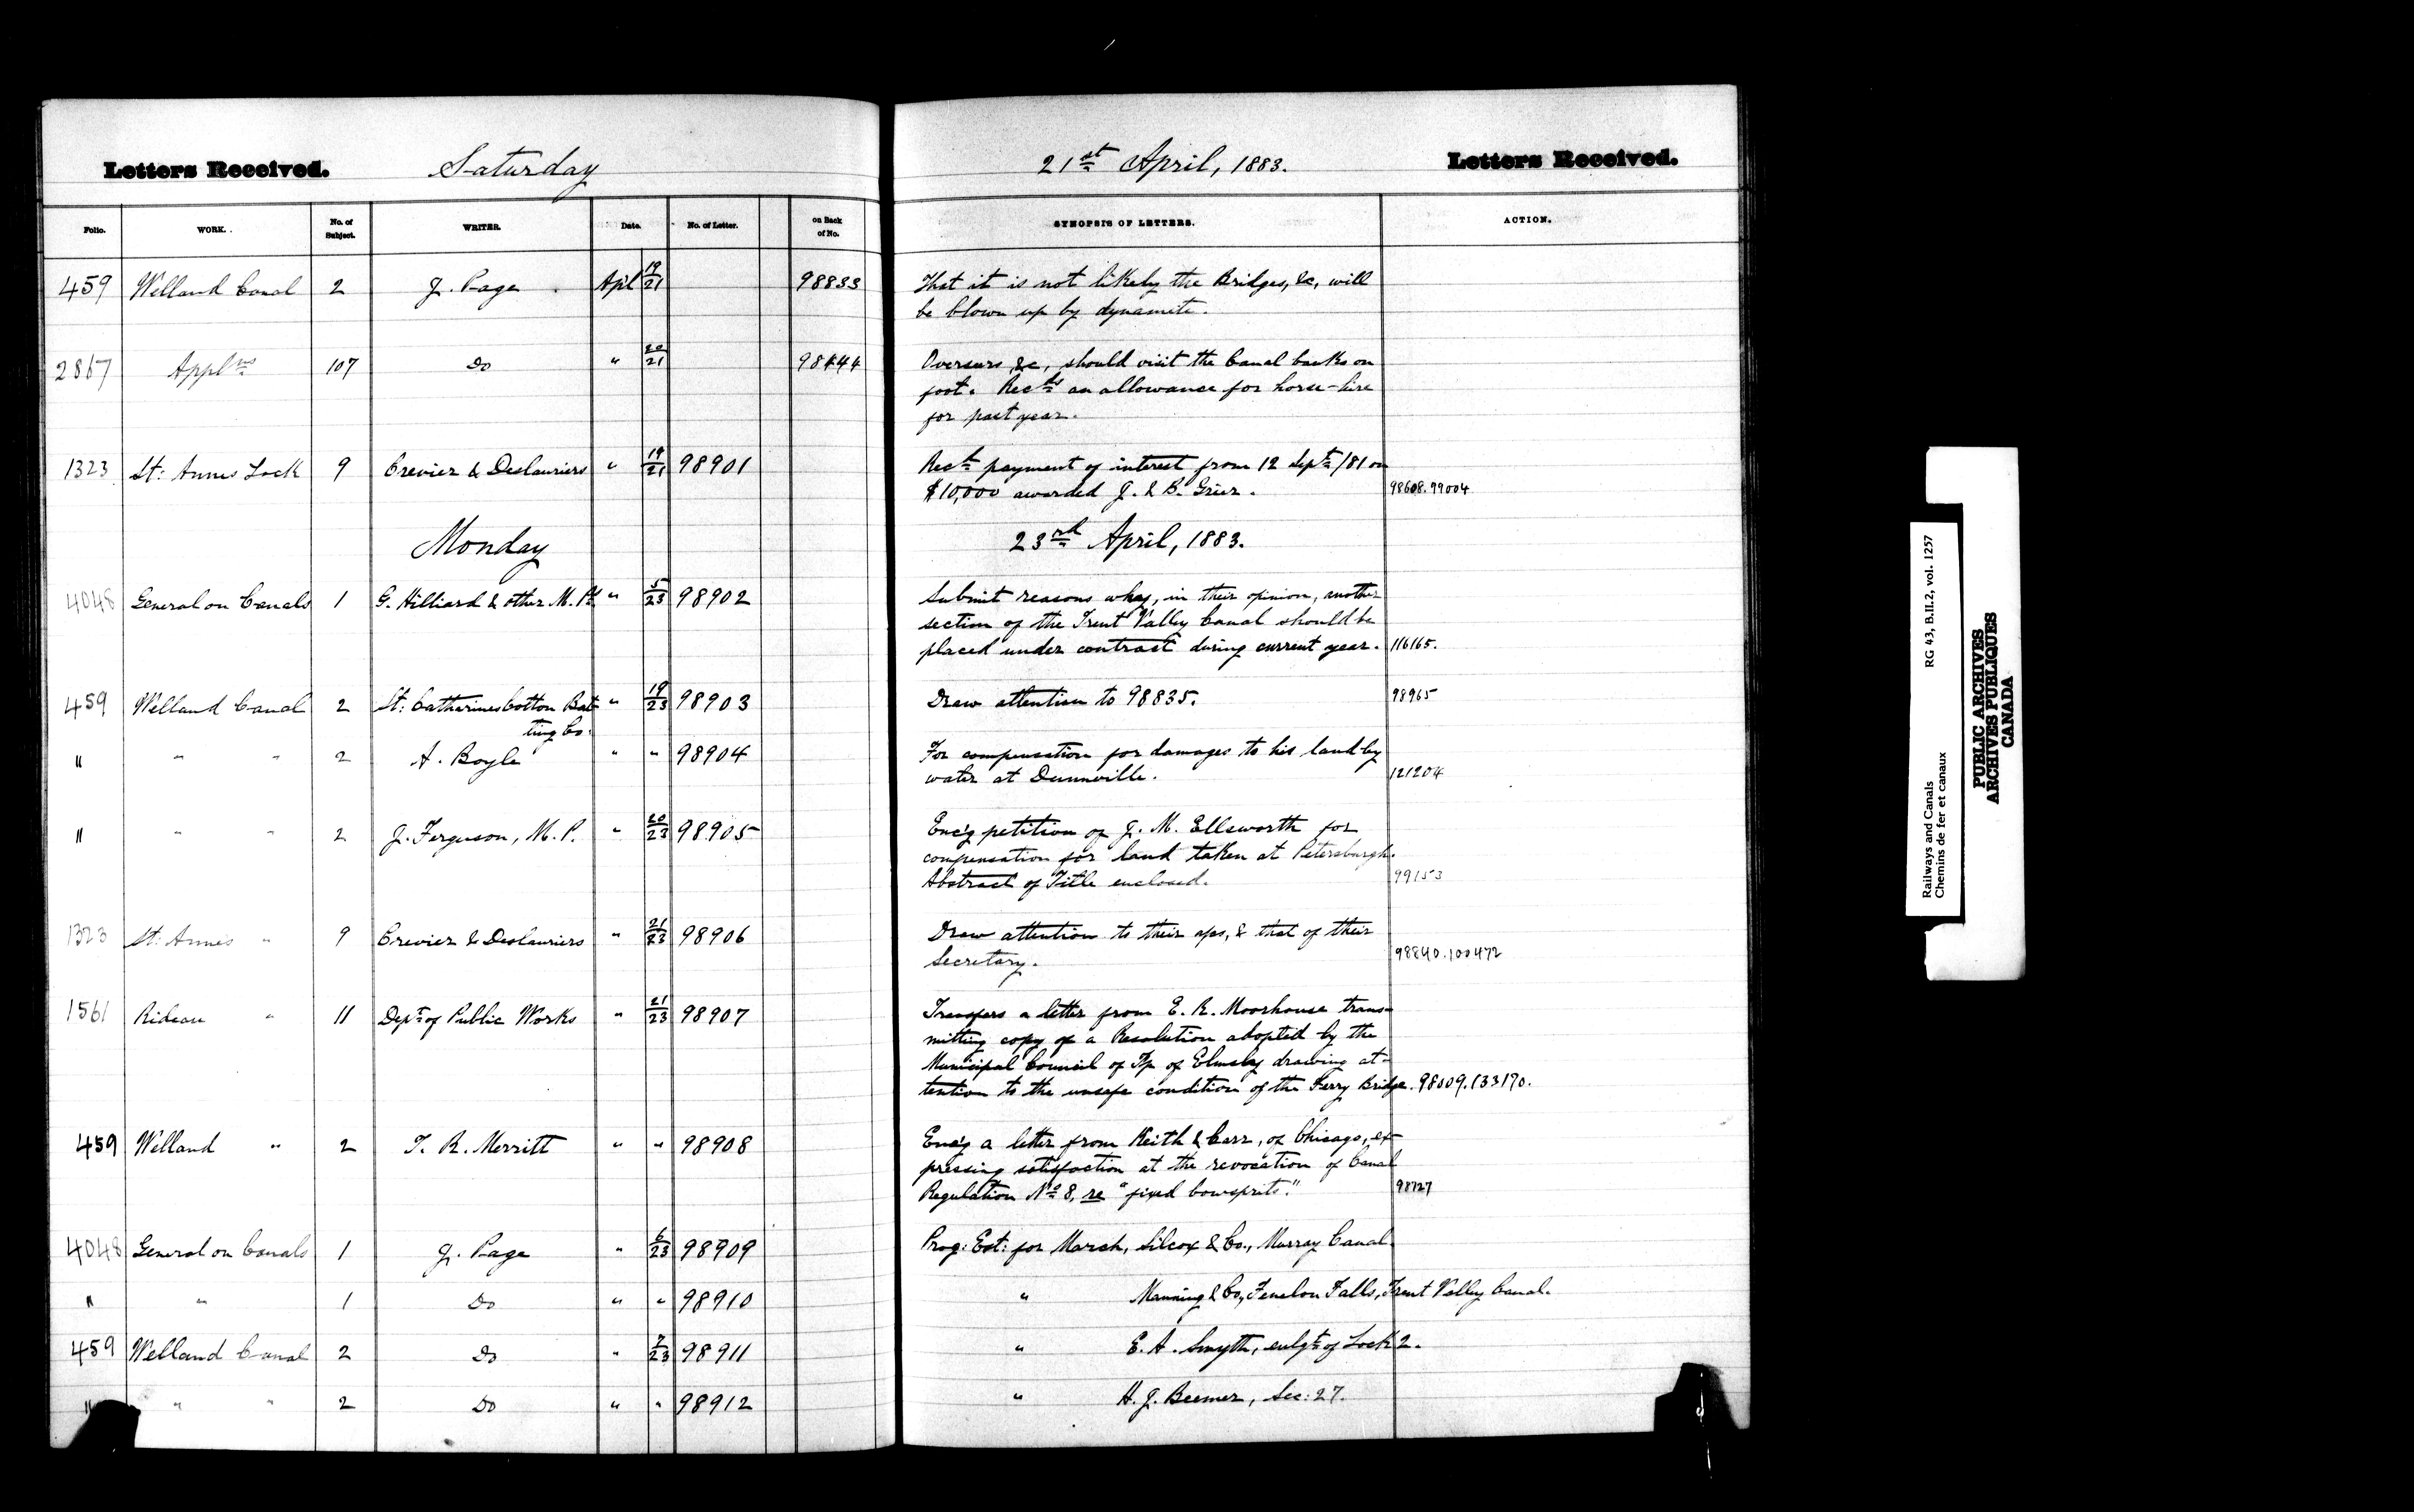 Letters Received. Saturday 21st April, 1883. Letters Received.
Folio. WORK. No. of Subject. WRITER. Date. No. of Letter. on Back of No. SYNOPSIS OF LETTERS. ACTION.
459 Welland Canal 2 J. Page Apl 19/21 98833 That it is not likely the Bridges, &c, will
be blown up by dynamite.
2867 Applns 107 Do " 20/21 98444 Overseers, &c, should visit the Canal banks on
foot. Recds an allowance for horse-hire
for past year.
1323 St: Annes Lock 9 Crevier & Deslauriers " 19/21 98901 Rect payment of interest from 12 Sept/81 on
$10,000 awarded J. & B. Grier. 98608.99004
Monday 23rd April, 1883.
4048 General on Canals 1 G. Hilliard & other M.Ps " 5/23 98902 Submit reasons why, in their opinion, another
section of the Trent Valley Canal should be
placed under contract during current year. 116165.
459 Welland Canal 2 St: Catharines Cotton Bat- " 19/23 98903 Draw attention to 98835. 98965
ting Co:
" " " 2 A. Boyle " " 98904 For compensation for damages to his land by
water at Dunnville. 121204
" " " 2 J. Ferguson, M.P. " 20/23 98905 Enc'g petition of J. M. Ellsworth for
compensation for land taken at Petersburgh.
Abstract of Title enclosed. 99153
1323 St: Annes " 9 Crevier & Deslauriers " 21/23 98906 Draw attention to their a/cs, & that of their
Secretary. 98840.100472
1561 Rideau " 11 Dept of Public Works " 21/23 98907 Transfers a letter from E. R. Moorhouse trans-
mitting copy of a Resolution adopted by the
Municipal Council of Tp of Elmsley drawing at-
tention to the unsafe condition of the Ferry Bridge. 98009.133190.
459 Welland " 2 T. R. Merritt " " 98908 Enc'g a letter from Keith & Carr, of Chicago, ex-
pressing satisfaction at the revocation of Canal
Regulation No 8, re "fixed bowsprits." 98727
4048 General on Canals 1 J. Page " 6/23 98909 Prog: Est: for March, Silcox & Co., Murray Canal.
" " 1 Do " " 98910 " Manning & Co., Fenelon Falls, Trent Valley Canal.
459 Welland Canal 2 Do " 7/23 98911 " E. A. Smyth, enlgt of Lock 2.
" " " 2 Do " " 98912 " H. J. Beemer, Sec: 27.
Railways and Canals RG 43, B.II.2, vol. 1257
Chemins de fer et canaux
PUBLIC ARCHIVES
ARCHIVES PUBLIQUES
CANADA